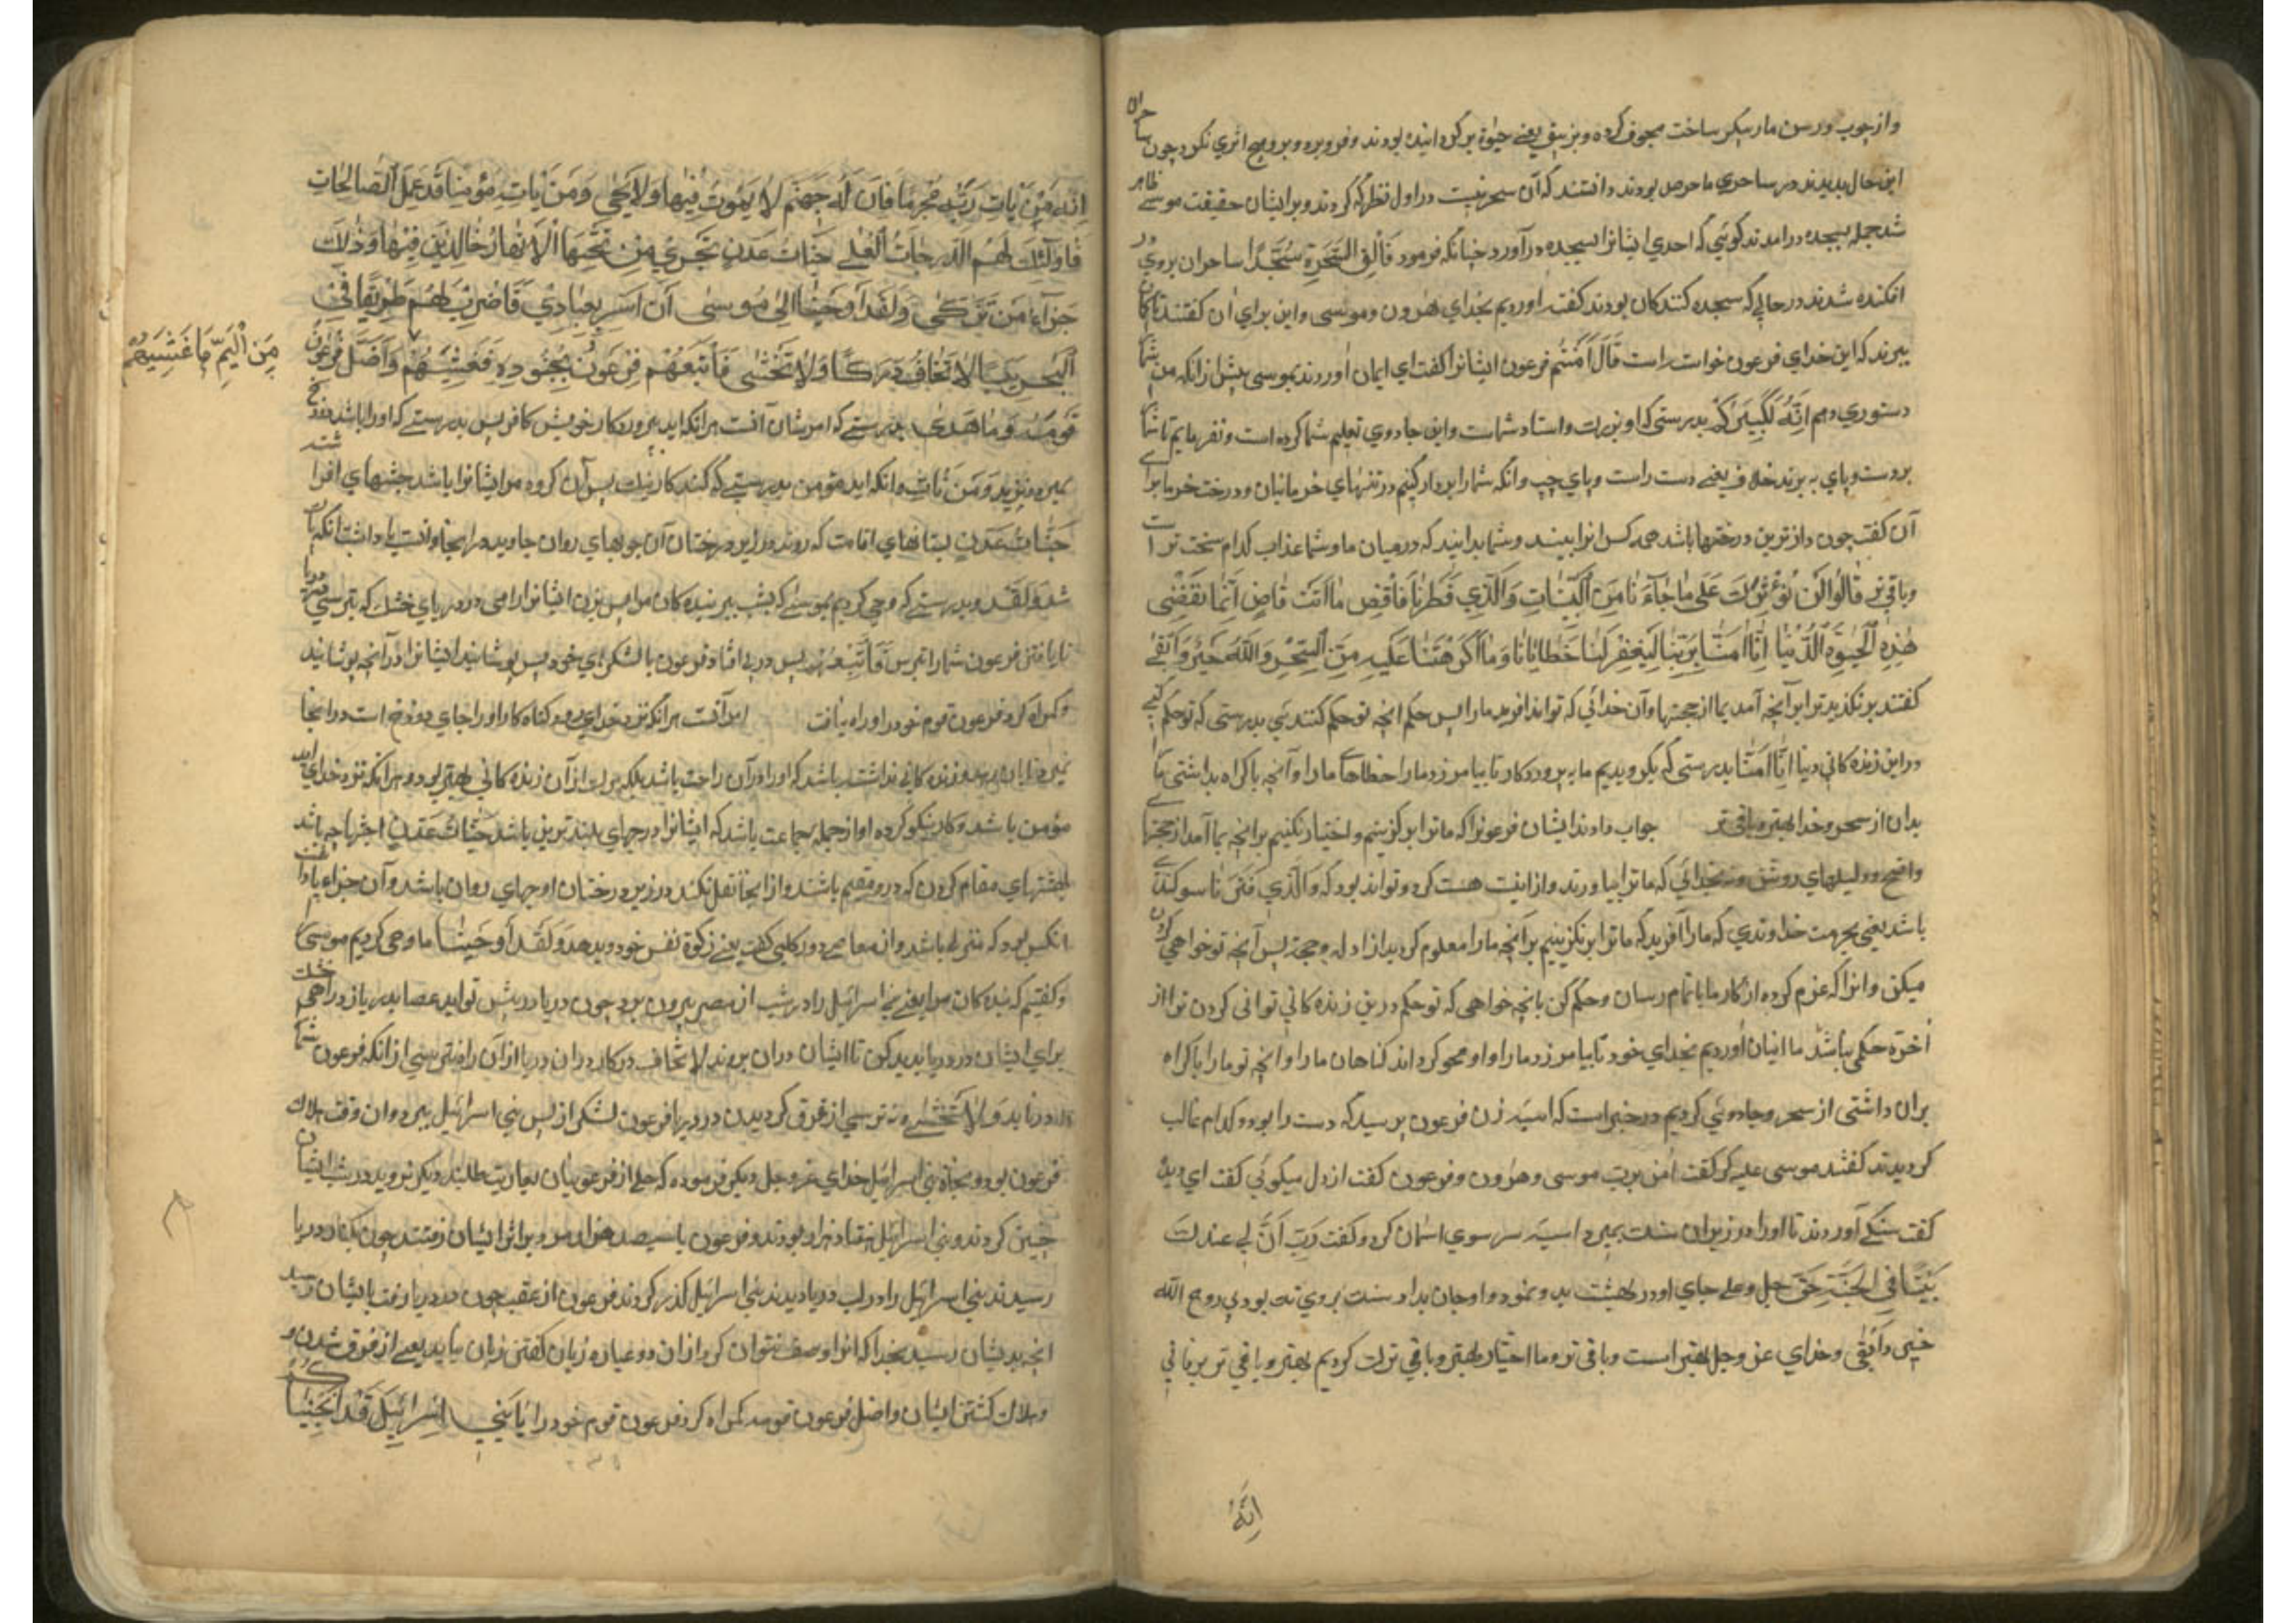 واز چوب ورسن مار پیکر ساخت مجوف کرده وبزیبق یعنے حیوة پر کردانیده بودند وفرو برد وبرو هیچ اثری نکرد چون ساحران
این حال بدیدند در ساحری ماهر بودند دانستند که آن سحر نیست در اول نظر که کردند وبر ایشان حقیقت موسے ظاهر
شد جمله بسجده درامدند کوئی که احدی ایشانرا بسجده درآورد چنانکه فرمود فَاُلْقِیَ السَّحَرَةُ سُجَّدًا ساحران بروی در
افکنده شدند در حالے که سجده کنندکان بودند کفتند اوردیم بخدای هرون وموسی واین برای ان کفتند تا کمان
نبرند که این خدای فرعون خواست راست قَالَ اٰمَنْتُمْ فرعون ایشانرا کفت ای ایمان اوردند بموسی پیش ازانکه من شما
دستوری دهم اِنَّهُ لَكَبِيرُكُمْ بدرستی که او بزرك واستاد شماست واین جادوی تعلیم شما کرده است ونفرمایم تا شما
بر دست وپای به برند خلاف یعنے دست راست وپای چپ وانکه شمارا بردار کنیم در تنهای خرمابنان ودرخت خرما برای
آن کفت چون دازترین درختها باشد همه کس انرا ببیند وشما بدانید که در میان ما وشما عذاب کدام سخت تر است
وباقی تر قَالُوا لَنْ نُؤْثِرَكَ عَلٰى مَا جَاءَنَا مِنَ الْبَيِّنَاتِ وَالَّذِي فَطَرَنَا فَاقْضِ مَا اَنْتَ قَاضٍ اِنَّمَا تَقْضِي
هٰذِهِ الْحَيٰوةَ الدُّنْيَا اِنَّا اٰمَنَّا بِرَبِّنَا لِيَغْفِرَ لَنَا خَطَايَانَا وَمَا اَكْرَهْتَنَا عَلَيْهِ مِنَ السِّحْرِ وَاللّٰهُ خَيْرٌ وَاَبْقٰى
کفتند بر نکذیدیم ترا بر آنچه آمد بما از حجتها وآن خدائی که تواند افرید مارا پس حکم انچه تو حکم کنندئی بدرستی که تو حکم کنی
در این زنده کانی دنیا اِنَّا اٰمَنَّا بدرستی که بکرویدیم ما به پروردکار تا بیامرزد مارا خطاها مارا وآنچه باکراه بداشتی مارا
بدان از سحر وخدا بهتر وباقی تر جواب دادند ایشان فرعونرا که ما ترا بر کزینیم واختیار نکنیم برانچه بما آمد از حجتها
واضح ودلیلهای روشن وبخدائی که ما ترا بیاورند واز انیت هست کرد وتواند بود که وَالَّذِي فَطَرَنَا سوکند
باشد یعنی بحرمت خداوندی که مارا آفرید که ما ترا بر نکزینیم بر آنچه مارا معلوم کردید از ادله وحجة پس آنچه تو خواهی کردن
میکن وانرا که عزم کرده از کار ما باتمام رسان وحکم کن بانچه خواهی که تو حکم درین زنده کانی توانی کردن ترا از
آخرة حکمی نباشد ما ایمان اوردیم بخدای خود تا بیامرزد مارا واو محو کرداند کناهان مارا وانچه تو مارا باکراه
بران داشتی از سحر وجادوئی کردیم در خبر است که اسیه زن فرعون پرسید که دست را بود وکدام غالب
کردیدند کفتند موسی علیه کر کفت امن برب موسی وهرون وفرعون کفت از دل میکوئی کفت ای دید
کفت سنکے آوردند تا اورا در زیر ان سنك بمیرد اسیه سر سوی اسمان کرد وکفت رَبِّ ابْنِ لِي عِندَكَ
بَيْتًا فِي الْجَنَّةِ حق جل وعلی جای اودر بهشت بدو نمود واو جان بداد سنك بروی تن بودبی روح الله
خیر وَاَبْقٰى وخدای عز وجل بهتر است وباقی تر وما اختیار بهتر وباقی ترك کردیم بهتر وباقی تر برفانی
اِنَّهُ
اِنَّهُ مَنْ يَأْتِ رَبَّهُ مُجْرِمًا فَاِنَّ لَهُ جَهَنَّمَ لَا يَمُوتُ فِيْهَا وَلَا يَحْيٰى وَمَنْ يَأْتِهِ مُؤْمِنًا قَدْ عَمِلَ الصَّالِحَاتِ
فَاُولٰئِكَ لَهُمُ الدَّرَجَاتُ الْعُلٰى جَنَّاتُ عَدْنٍ تَجْرِي مِنْ تَحْتِهَا الْاَنْهَارُ خَالِدِيْنَ فِيْهَا وَذٰلِكَ
جَزَاءُ مَنْ تَزَكّٰى وَلَقَدْ اَوْحَيْنَا اِلٰى مُوسٰى اَنْ اَسْرِ بِعِبَادِي فَاضْرِبْ لَهُمْ طَرِيقًا فِي
الْبَحْرِ يَبَسًا لَا تَخَافُ دَرَكًا وَلَا تَخْشٰى فَاَتْبَعَهُمْ فِرْعَوْنُ بِجُنُودِهِ فَغَشِيَهُمْ وَاَضَلَّ فِرْعَوْنُ
مِنَ الْيَمِّ مَا غَشِيَهُمْ
قَوْمَهُ وَمَا هَدٰى بدرستے که امر شان آنست هرانکه اید بپروردکار خویش کافر پس بدرستے که اورا باشد دوزخ
نمیرد ونزید وَمَنْ يَأْتِهِ وانکه اید مؤمن بدرستے که کند کار نیك پس آن کروه مرایشانرا باشد جنتهای افراشته
جَنَّاتُ عَدْنٍ بستانهای اقامت که روند در زیر درختان آن جویهای روان جاوید در اینجا وانست پاداشت انکه پاك
شد وَلَقَدْ وبدرستے که وحی کردیم بموسے که بشب ببر بنده کان مرا پس بزن ایشانرا راهی در دریای خشك که نترسی
تا یافتن فرعون شمارا نترس فَاَتْبَعَهُمْ پس در پی افتاد فرعون بالشکرهای خود پس پوشانید ایشانرا از آنچه پوشانید
وکمراه کرد فرعون قوم خود را وراه نیافت امر آنست هرانکه نزد خدای رود کناه کار اورا جای دوزخ است در انجا
مؤمن باشد وکار نیکو کرده او از جمله جماعت باشد که ایشانرا درجهای بلندترین باشد جَنَّاتُ عَدْنٍ اجنها چه باشد
بهشتهای مقام کردن که درو مقیم باشند واز انجا نقل نکند در زیر درختان او جویهای روان باشد وآن جزاء پاداشت
انکس بود که متزکی باشد واز معاصی دور کلبی کفت یعنے زکوة نفس خود دیدهد وَلَقَدْ اَوْحَيْنَا ما وحی کردیم موسی
وکفتیم که بنده کان مرا یعنے بنی اسرائیل را در شب از مصر بیرون بر وچون دریا درپیش تو اید عصا بدریا زد راهی خشك
برای ایشان در دریا بدید کون تا ایشان دران بروند لَا تَخَافُ دَرَكًا دران دریا ازآن راه نترسی ازانکه فرعون شما
را دریابد وَلَا تَخْشٰى ونترسی از غرق کردیدن در دریا فرعون لشکر از پس بنی اسرائیل ببرد وان وقت هلاك
فرعون بود ونجاة بنی اسرائیل خدای عز وجل دیکر فرموده که حلی از فرعونیان بعاریت طلبند دیکر بروید در شب ایشان
چنین کردند وبنی اسرائیل هفتاد هزار بودند وفرعون با سیصد هزار مرد بر اثر ایشان رفتند چون بکنار دریا
رسیدند بنی اسرائیل را در لب دریا دیدند بنی اسرائیل کذر کردند فرعون از عقب چون در دریا رفت بایشان رسید
انچه بدیشان رسید بخدا که انرا وصف نتوان کرد
وهلاك کشتن ایشان واضل فرعون قومه کمراه کرد فرعون قوم خود را يَا بَنِي اِسْرَائِيلَ قَدْ اَنْجَيْنَا